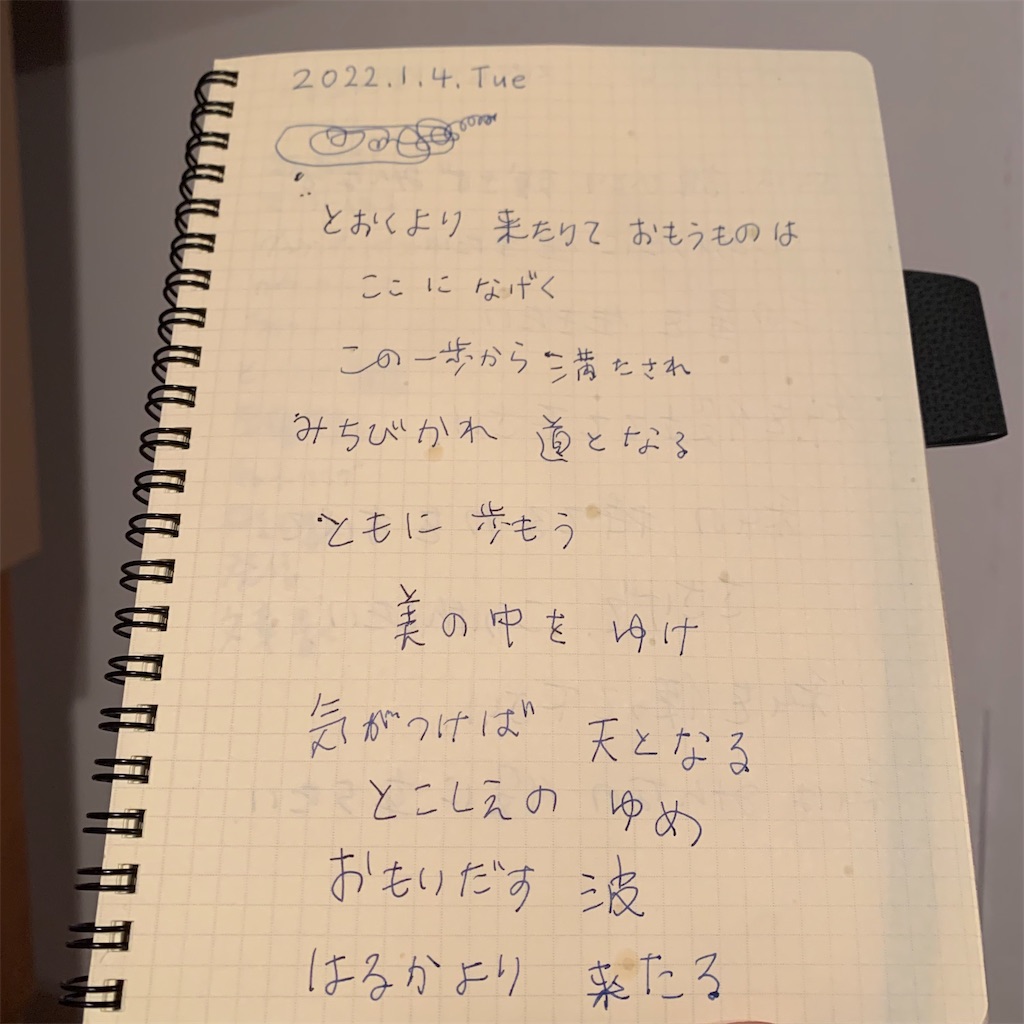 2022.1.4.Tue
とおくより 来たりて おもうものは
ここに なげく
この一歩から 満たされ
みちびかれ 道となる
ともに 歩もう
美の中を ゆけ
気がつけば 天となる
とこしえの ゆめ
おもいだす 波
はるかより 来たる